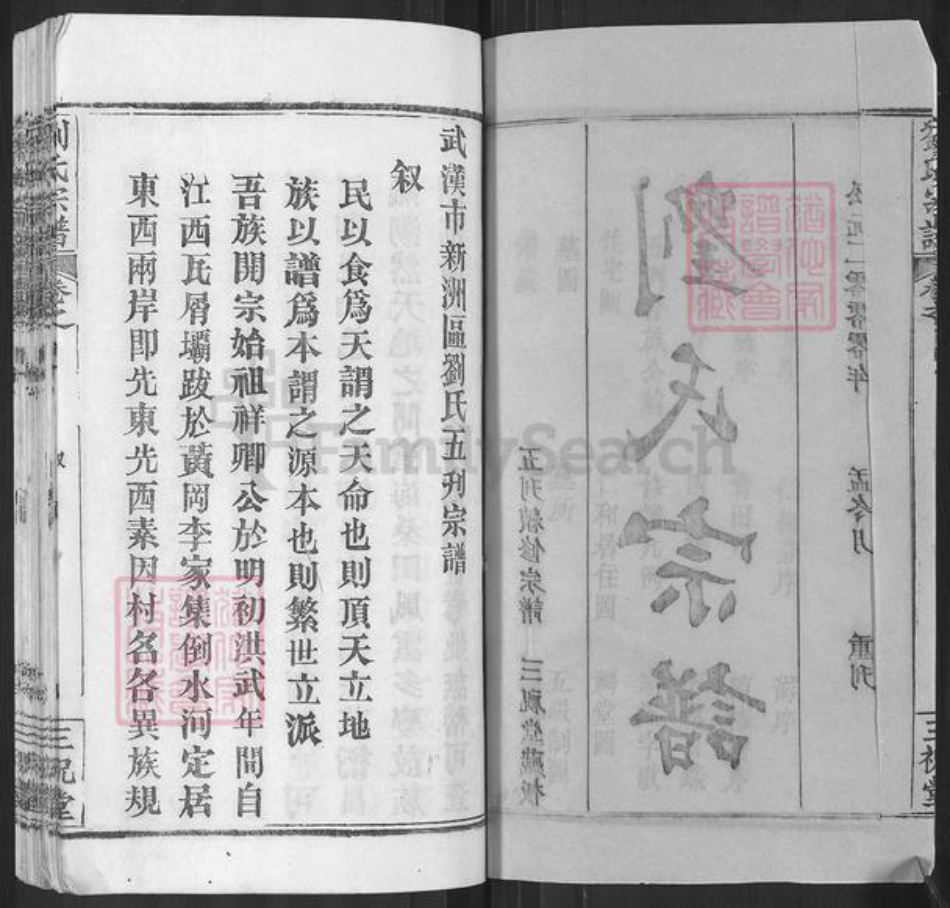 劉氏宗譜
公元二零零零年 孟冬月 重刊
劉氏宗譜
五刊續修宗譜 三祝堂藏板
三祝堂
武漢市新洲區劉氏五刋宗譜
叙
民以食爲天謂之天命也則頂天立地
族以譜爲本謂之源本也則繁世立派
吾族開宗始祖祥卿公於明初洪武年間自
江西瓦屑壩跋於黃岡李家集倒水河定居
東西兩岸即先東先西素因村名各異族規
劉氏宗譜
卷之
叙
三祝堂
FamilySearch